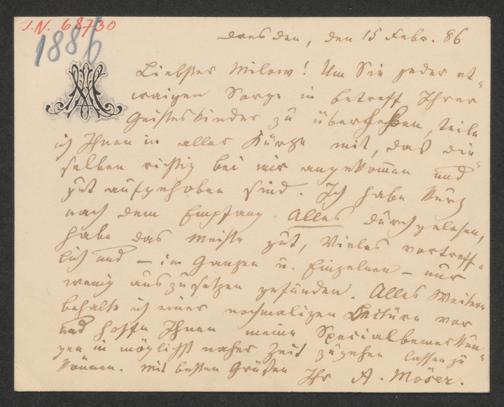 J.N. 68730
1886
Dresden, den 15 Febr. 86
Liebster Milow! Um Sie jeder et-
waigen Sorge in betreff Ihrer
Geisteskinder zu überheben, teile
ich Ihnen in aller Kürze mit, daß die-
selben richtig bei mir angekommen und
gut aufgehoben sind. Ich habe kurz
nach dem Empfang Alles durchgelesen,
habe das Meiste gut, Vieles vortreff-
lich und – im Ganzen u. Einzelnen – nur
wenig auszusetzen gefunden. Alles Weitere
behalte ich einer nochmaligen Lektüre vor
und hoffe Ihnen meine Specialbemerkun-
gen in möglichst naher Zeit zugehen lassen zu
können. Mit besten Grüßen Ihr A. Möser.